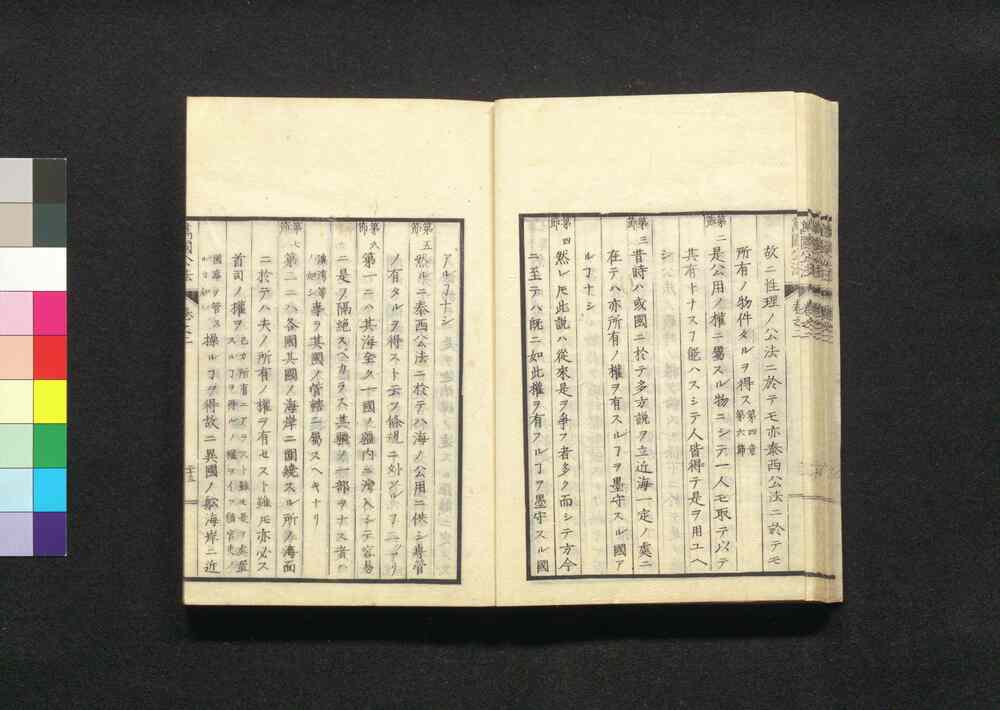 故ニ性理ノ公法ニ於テモ亦泰西公法ニ於テモ
所有ノ物件タルヲ得ス第四章第六節
第二節
是公用ノ權ニ屬スル物ニシテ一人モ取テ以テ
其有トナスヿ能ハスシテ人皆得テ是ヲ用ユヘ
シ
第三節
昔時ハ或國ニ於テ多方說ヲ立近海一定ノ處ニ
在テハ亦所有ノ權ヲ有スルヿヲ墨守スル國ア
ルヿナシ
第四節
然レ𪜈此說ハ從來是ヲ爭フ者多ク而シテ方今
ニ至テハ既ニ如此權ヲ有フルヿヲ墨守スル國
アルヿナシ
第五節
然ルニ泰西公法ニ於テハ海ノ公用ニ供シ專管
ノ有タルヲ得ストノ云フ條規ニ外ツルヿニツアリ
第六節
第一ニハ其海全ク一國ノ疆內ニ灣入シテ容易
ニ是ヲ隔絕スヘカラス其興ノ一部ヲナス者
濱湾等ノ如シ專ラ其國ノ管轄ニ屬スヘキナリ
第七節
第二ニハ各國其國ノ海岸ニ圍繞スル所ノ海面
ニ於テハ夫ノ所有ノ權ヲ有セスト雖𪜈亦必ス
首司ノ權ヲ
操ルヿヲ得故ニ異國ノ舩海岸ニ近
萬國公法 卷之二
二十五